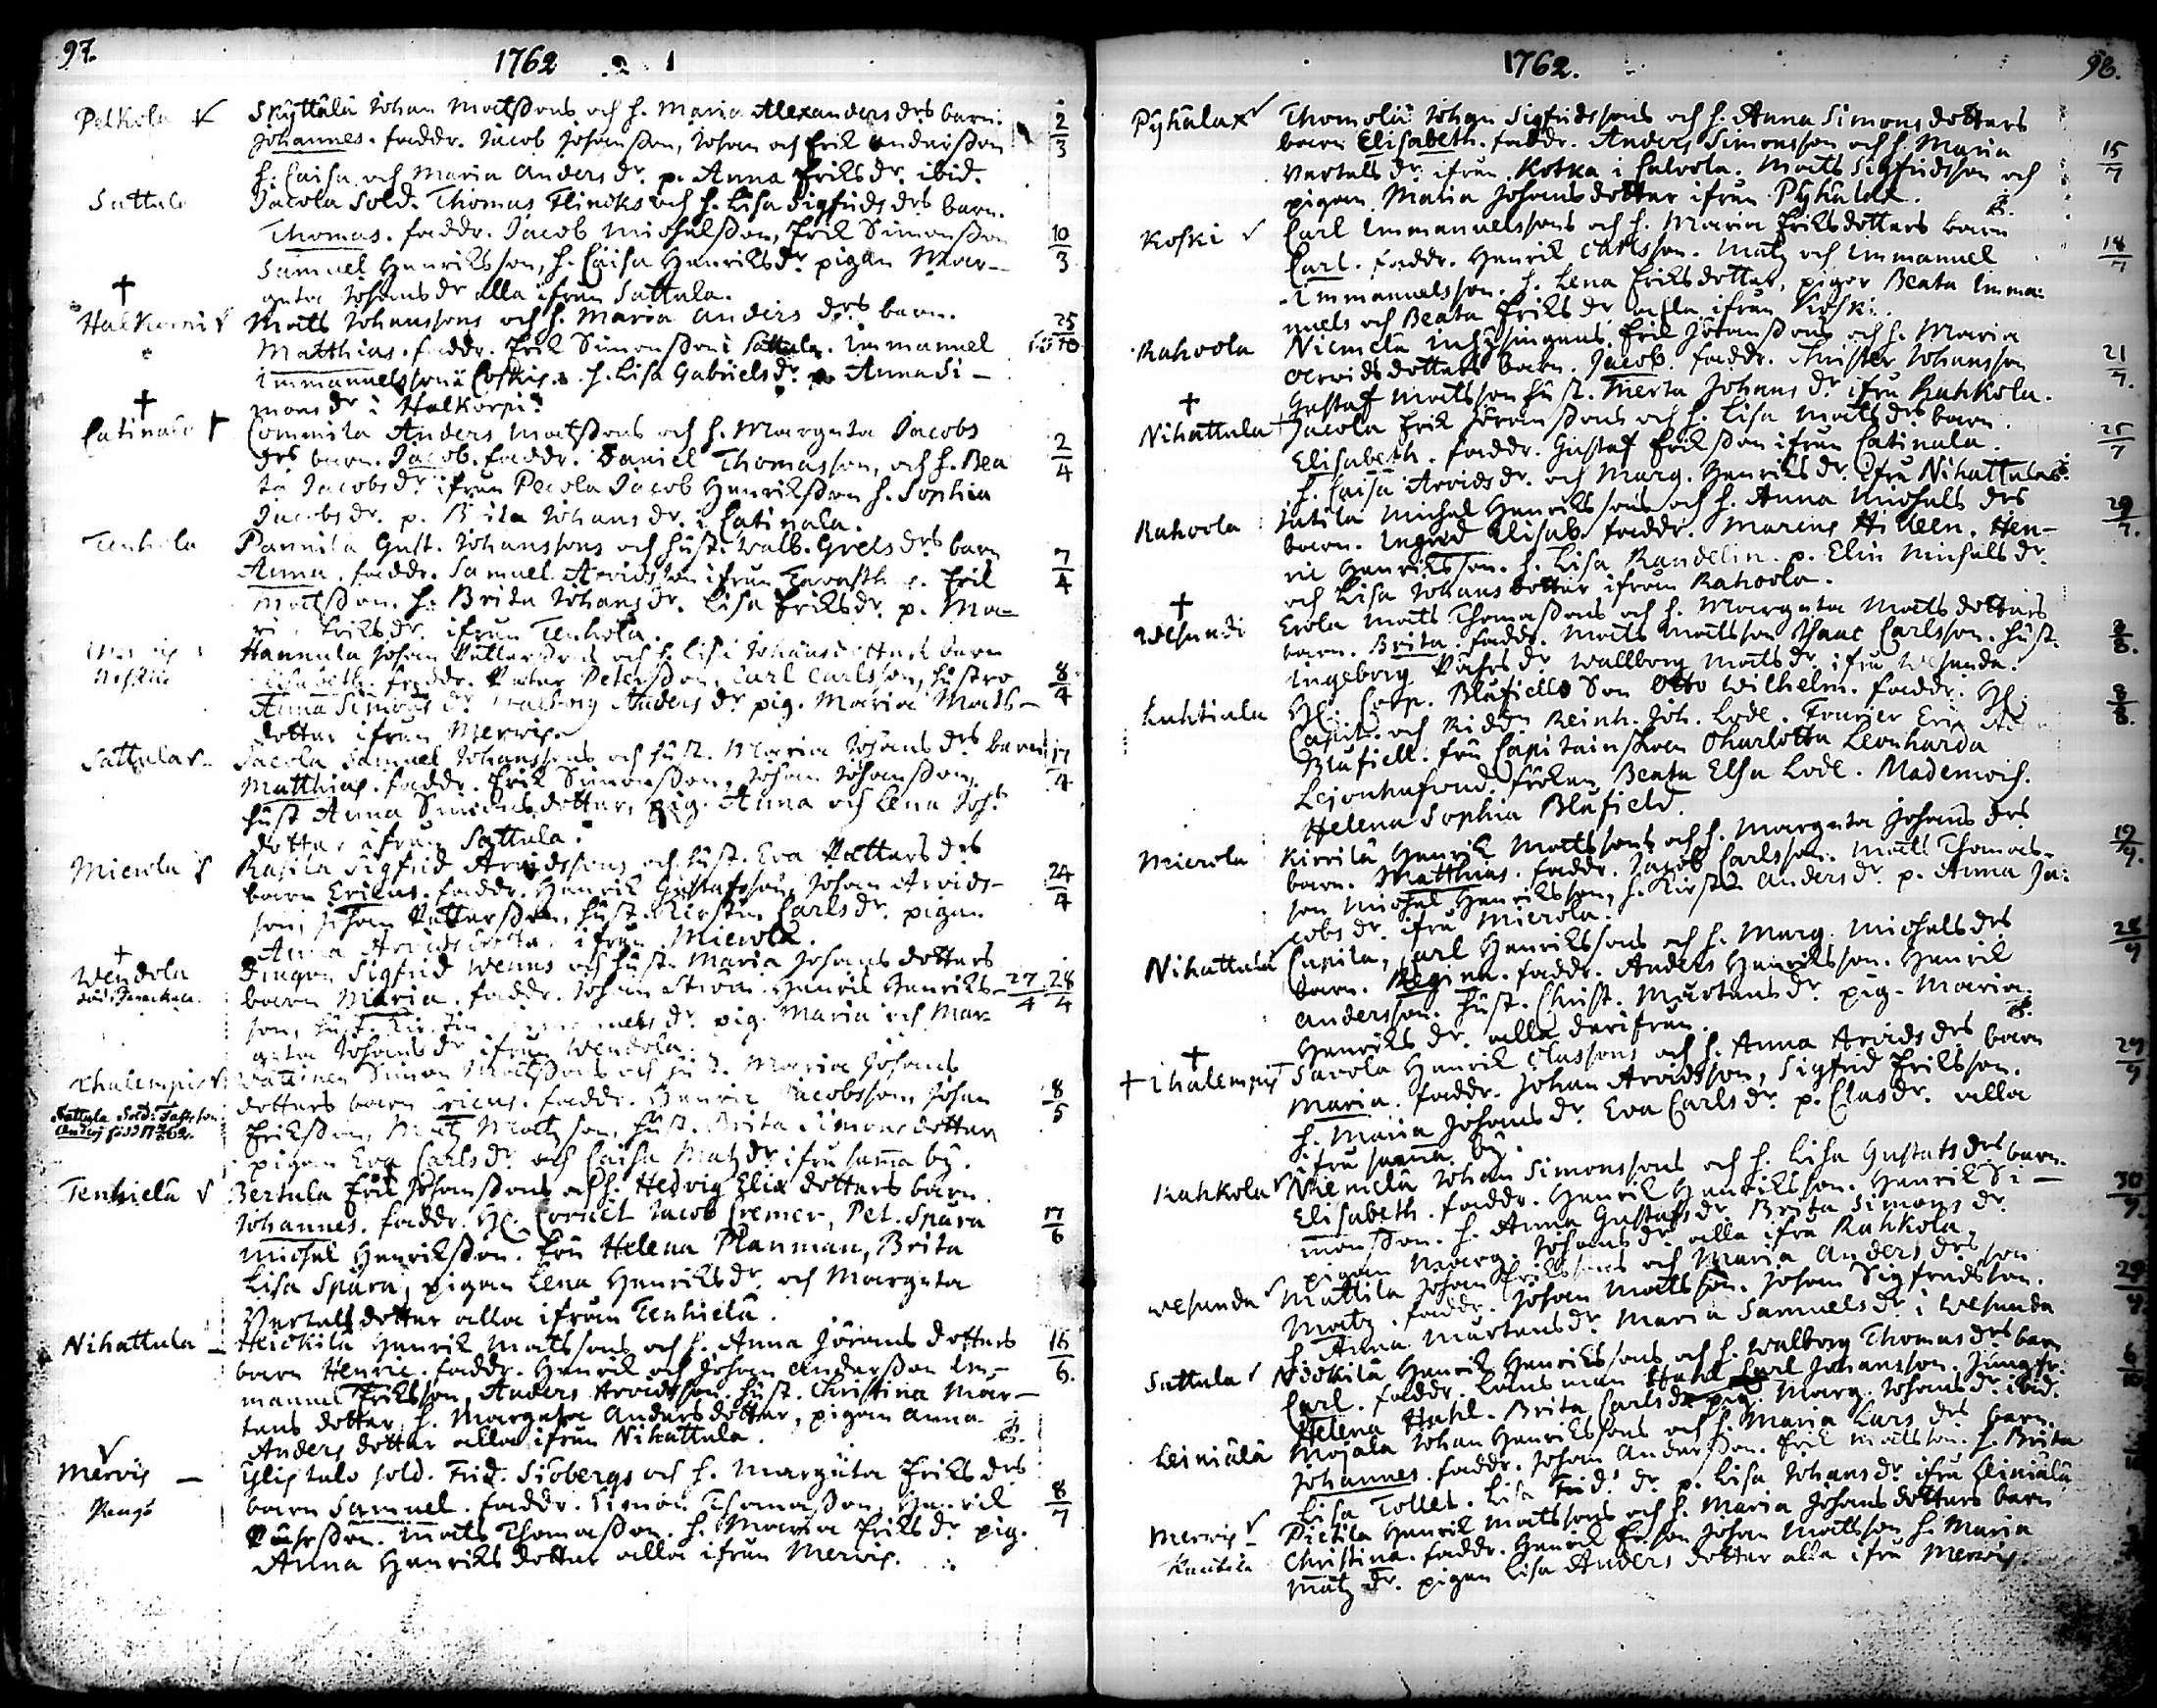 97.
1762
Pelkola Skyttälä Johan Matssons och h. Maria Alexanders drs barn.
Johannes. faddr. Jacob Johansson, Johan och Erik Andersson 2/3
h. Caisa och Maria Anders dr. p. Anna Eriks dr. ibid.
Sattula Jacola Sold. Thomas Flincks och h. Lisa Sigfrids drs barn.
Thomas. faddr. Jacob Michelsson, Erik Simonsson 10/3
Samuel Henriksson, h. Caisa Henriks dr. pigan Mar-
greta Johans dr alla ifrån Sattula.
Halkorpi Matts Johanssons och h. Maria Anders drs barn.
Matthias. faddr. Erik Simonsson i Sattula. Immanuel
Immanuelsson i Coskis. h. Lisa Gabriels dr. p. Anna Si-
mons dr i Halkorpi.
Catinala Commila Anders Matssons och h. Margreta Jacobs
drs barn. Jacob. faddr. Daniel Thomasson, och h. Bea 2/4
ta Jacobs dr. ifrån Pecola Jacob Henriksson h. Sophia
Jacobs dr. p. Brita Johans dr. i Catinala.
Tenhola Pannila Gust. Johanssons och hust. Walb. Grels drs barn 7/4
Anna. faddr. Samuel Arvidsson ifrån Erik
Matsson. h. Brita Johans dr. Lisa Eriks dr. p. Ma-
Eriks dr. ifrån Tenhola.
Hannula Johan Pettersons och h. Lisa Johans dotters barn
Elisabeth. faddr. Peter Petersson, Carl Carlsson, hustro 8/4
Anna Simons dr. Walborg Anders dr pig. Maria Mats-
dotter ifrån Merwis.
Sattula Jacola Samuel Johanssons och hust. Maria Johans drs barn 17/4
Matthias. faddr. Erik Simonsson, Johan Johansson,
hust Anna Simons dotter, pig. Anna och Lena Joh.
dotter ifrån Sattula.
Mierola Rasila Sigfrid Arvidssons och hust. Eva Petters drs
barn Ericus. faddr. Henrik Gustafsson, Johan Arvids- 24/4
son, Johan Pettersson, hust. Kirstin Carls dr. pigan
Anna Arvids dotter ifrån Mierola.
Wendola Dragon Sigfrid Wenns och hust. Maria Johans dotters
barn Maria. faddr. Johan Henrik Henriks- 27/4 28/4
son, hust. dr. pig. Maria och Mar-
greta Johans dr ifrån Wendola.
Ihalempis Simon Matssons och hust. Maria Johans
dotters barn Ericus. faddr. Henric Jacobsson, Johan 8/5
Eriksson, Matz Matzson, hust. Brita Simons dotter
pigan Eva Carls dr. och Caisa Matz dr ifrån samma by.
Tenhielä Bertula Erik Johanssons och h. Hedvig Elia dotters barn.
Johannes. faddr. Hr. Cornet Jacob Cremer, Pet. Spåra 17/6
Michel Henriksson. fru Helena Planman, Brita
Lisa Spåra, pigan Lena Henriks dr. och Margreta
Bertels dotter alla ifrån Tenhielä.
Nihattula Heickilä Henrik Matssons och h. Anna Jörans dotters 16/6.
barn Henric. faddr. Henrik och Johan Andersson Im-
manuel Eriksson, Anders Arvidsson. hust. Christina Mår-
tens dotter, h. Margreta Anders dotter, pigan Anna
Anders dotter alla ifrån Nihattula.
Merwis Ylistalo sold. Frid. Siöbergs och h. Margreta Eriks drs
barn Samuel. faddr. Simon Thomasson, Henrik 8/7
Påhlsson. Mats Thomasson. h. Maria Eriks dr. pig.
Anna Henriks dotter alla ifrån Merwis.
1762.
98.
Pyhälax Thomola Johan Sigfridssons och h. Anna Simons dotters
barn Elisabeth. faddr. Anders Simonsson och h. Maria 15/7
Bertels dr. ifrån Kotka i Calvola. Matts Sigfridsson och
pigan Maria Johans dotter ifrån Pyhälax.
Koski Carl Immanuelssons och h. Maria Eriks dotters barn
Carl. faddr. Henrik Carlsson. Matz och Immanuel 18/7
Immanuelsson. h. Lena Eriks dotter, pigor Beata Imma-
nuels och Beata Eriks dr alla ifrån Koski.
Rahoola Niemelä inhysingens Erik Jöranssons och h. Maria
Arvids dotters barn. Jacob. faddr. Christer Johansson 21/7.
Gustaf Matsson hust. Merta Johans dr. ifrån Rahkola.
Nihattula Jacola Erik Jöranssons och h. Lisa Mats drs barn.
Elisabeth. faddr. Gustaf Eriksson ifrån Catinala. 25/7
h. Caisa Arvids dr. och Marg. Henriks dr. ifrån Nihattula.
Rahoola Jutila Michel Henrikssons och h. Anna Michels drs
barn. Ingrid Elisab. faddr. Marcus Hideen. Hen- 29/7.
ric Henriksson. h. Lisa Randelin. p. Elin Michels dr.
och Lisa Johans dotter ifrån Rahoola.
Wesunda Erola Mats Thomassons och h. Margreta Mats dotters
barn. Brita. faddr. Mats Matsson Isaac Carlsson. hust. 8/8.
Ingeborg Påhls dr Wallborg Mats dr. ifrån Wesunda.
Luhtiala Hr. Corp. Blåfiells Son Otto Wilhelm. faddr. Hr. 8/8.
Capit. och Ridd. Reinh. Joh. Lode. Fourier Eric
Blåfiell. fru Capitainskan Charlotta Leonharda
Lejonhufvud. fröken Beata Elsa Lode. Mademois.
Helena Sophia Blåfield.
Mierola Kirrilä Henrik Mattssons och h. Margreta Johans drs 19/9.
barn. Matthias. faddr. Jacob Carlsson. Matts Thomas-
son Michel Henriksson, h. Kirstin Anders dr. p. Anna Ja-
cobs dr. ifrån Mierola.
Nihattula Cupila, Carl Henrikssons och h. Marg. Michels drs 28/9
barn. Regina. faddr. Anders Henriksson. Henrik
Andersson. hust. Christ. Mårtens dr. pig. Maria
Henriks dr. alla derifrån.
Ihalempis Savola Henrik Classons och h. Anna Arvids drs barn 29/9
Maria. faddr. Johan Arvidsson, Sigfrid Eriksson.
h. Maria Johans dr. Eva Carls dr. p. Clas dr. alla
ifrån samma by.
Rahkola Niemelä Johan Simonssons och h. Lisa Gustafs drs barn.
Elisabeth. faddr. Henrik Henriksson. Henrik Si- 30/9.
monsson. h. Anna Gustafs dr. Brita Simons dr.
pigan Marg. Johans dr alla ifrån Rahkola.
Wesunda Mattila Johan Erikssons och Maria Anders drs son
Matz. faddr. Johan Matsson. Johan Sigfredsson. 29/9.
h. Anna Mårtens dr. Maria Samuels dr. i Wesunda
Sattula Nickilä Henrik Henrikssons och h. Walborg Thomas drs barn
Carl. faddr. Länsman Hahl Carl Johansson. Jungfr. 6/10
Helena Hahl. Brita Carls dr pig. Marg. Johans dr. ibid.
Leinialä Mojala Johan Henrikssons och h. Maria Lars drs barn.
Johannes. faddr. Johan Andersson. Erik Matsson. h. Brita
Lisa Tollet. Lisa Frid. dr. p. Lisa Johans dr. ifrån Leinialä
Merwis Pietilä Henrik Matssons och h. Maria Johans dotters barn
Christina. faddr. Henrik Johan Matsson h. Maria
Matz dr. pigan Lisa Anders dotter alla ifrån Merwis.